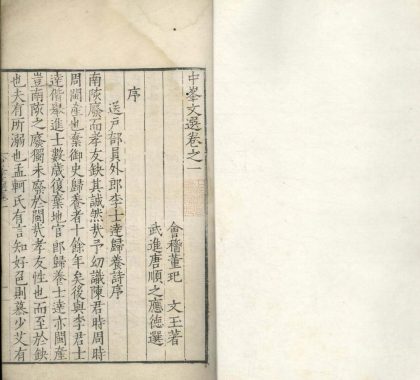 中峯文選卷之一
會稽董玘 文玉著
武進唐順之應德選
序
送戶部員外郎李士達歸養詩序
南陔廢而孝友缺其誠然哉予幼識陳君時周時
周閩產也棄御史歸養者十餘年矣後與李君士
達偕舉進士數歲復棄地官郎歸養士達亦閩產
豈南陔之廢獨未廢於閩哉孝友性也而至於缺
也夫有所溺也孟軻氏有言知好色則慕少艾有